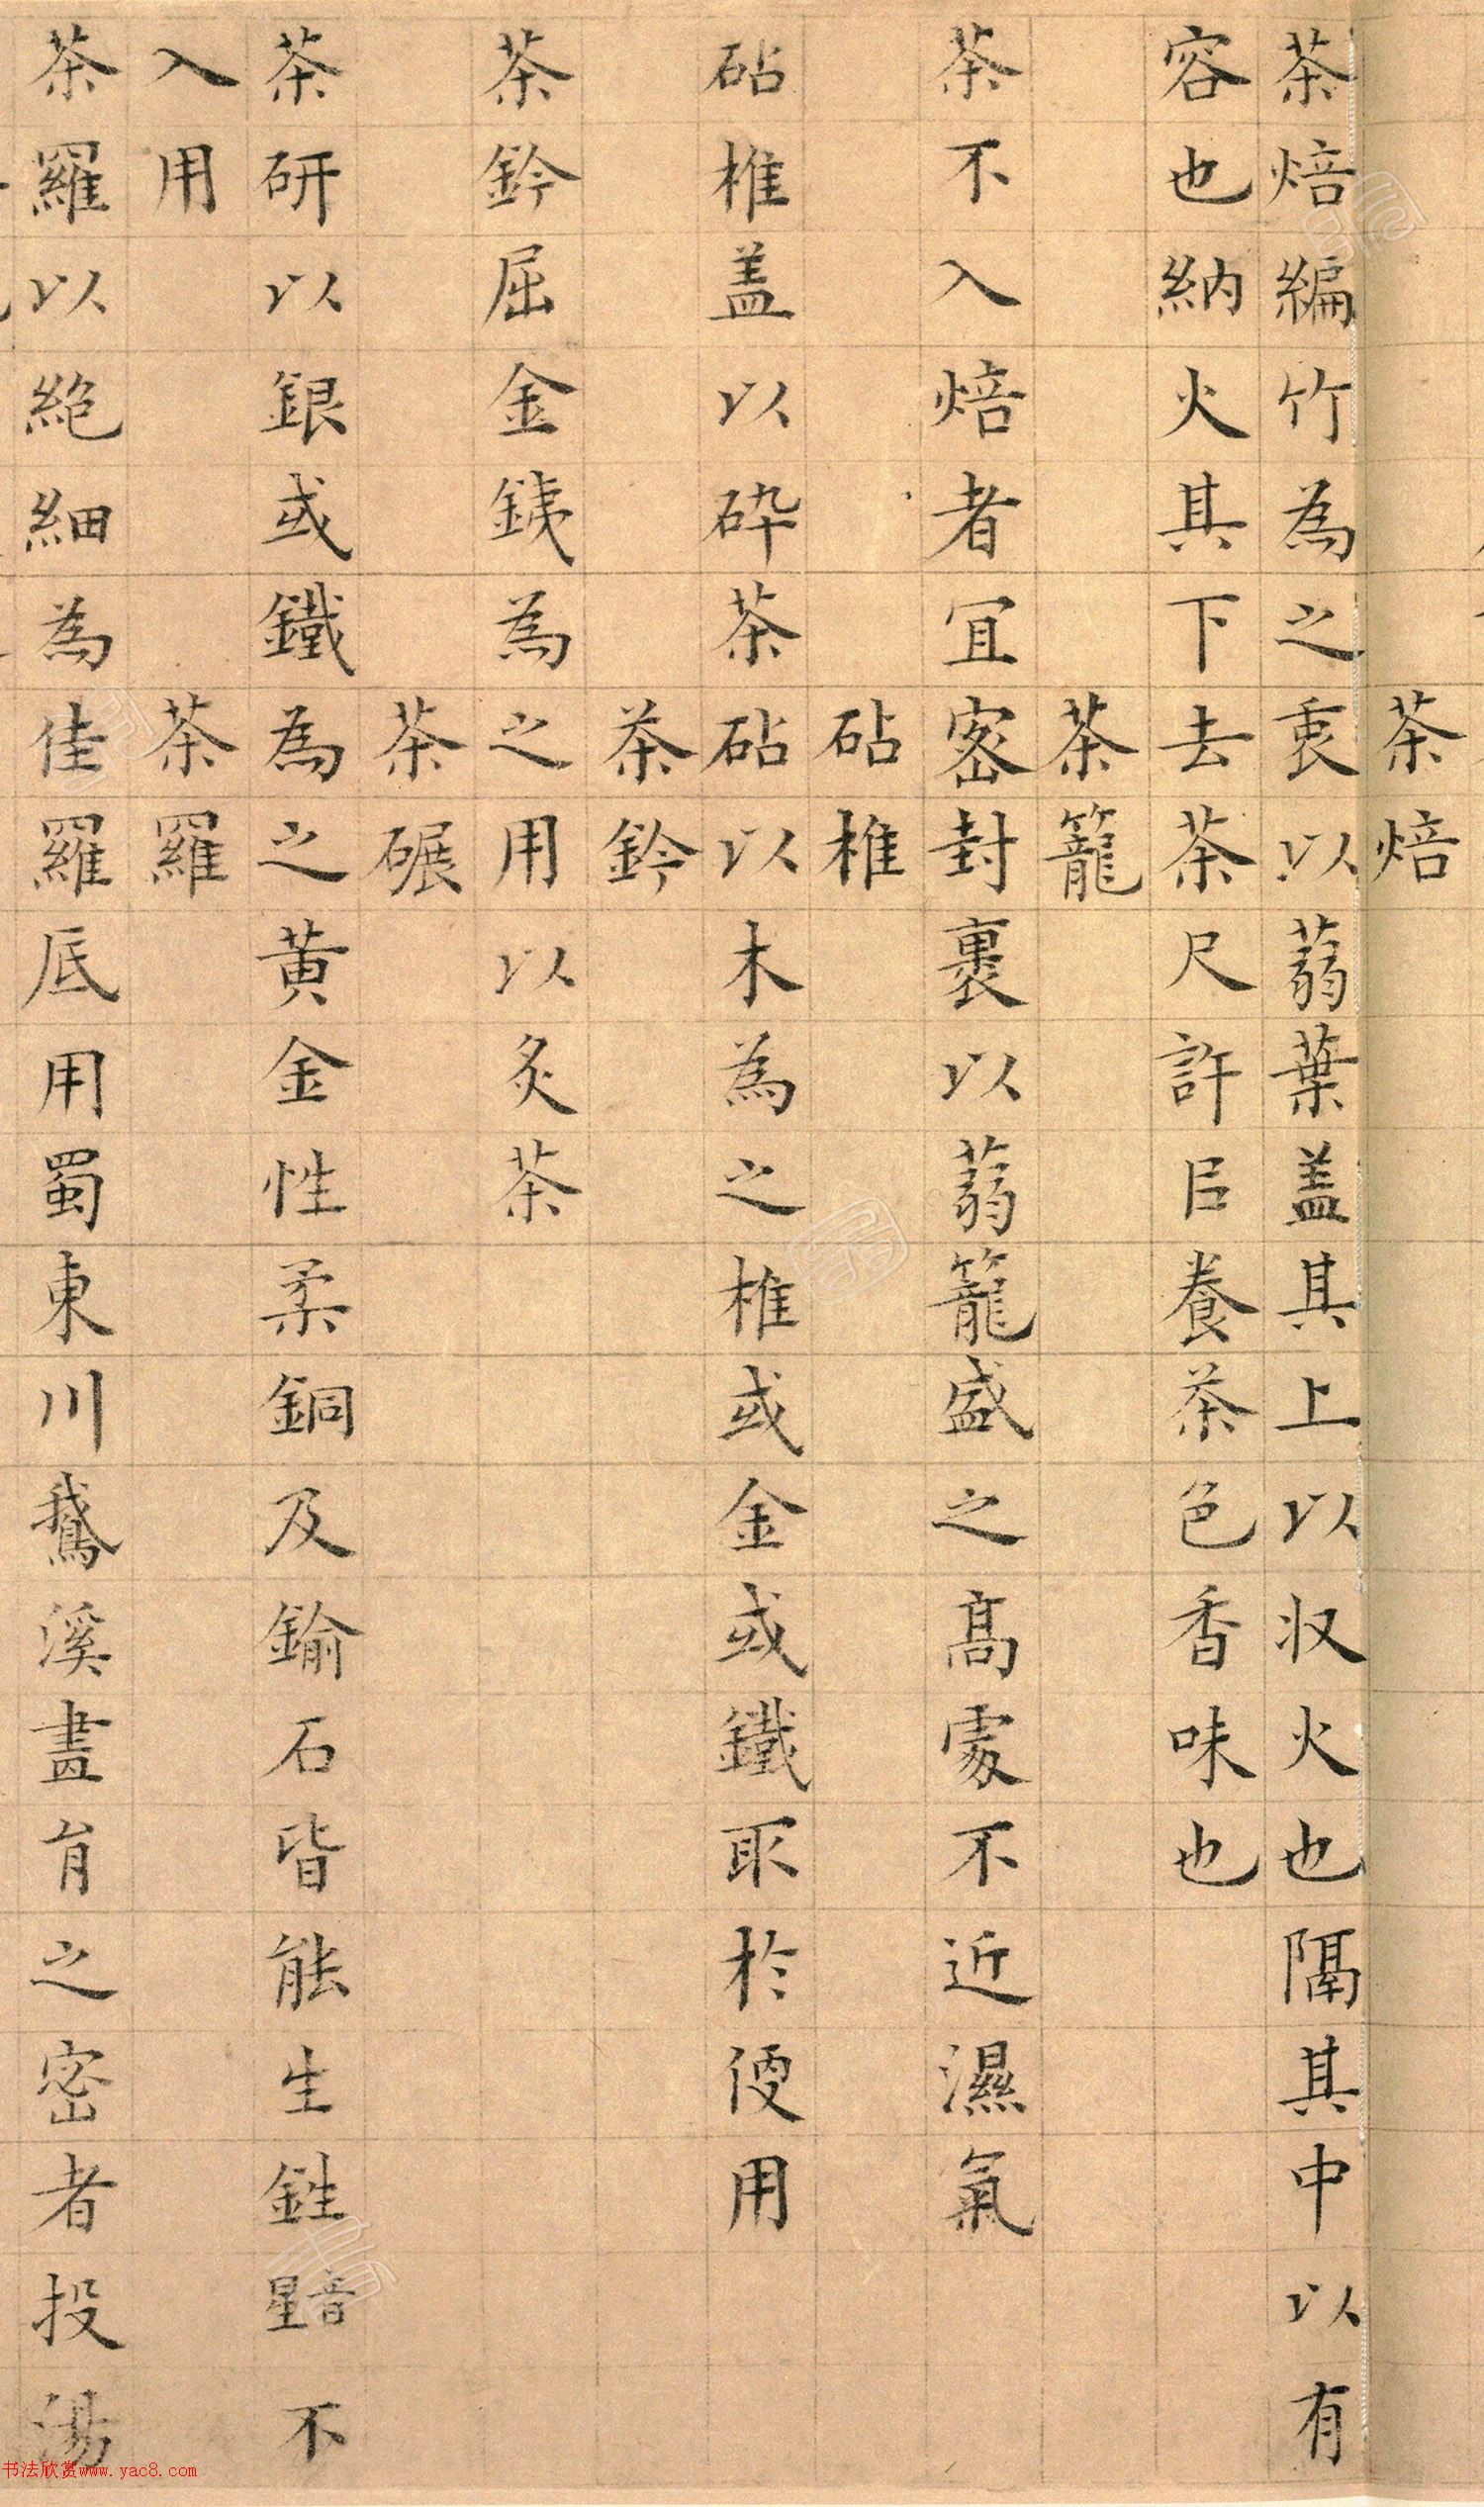 茶焙
茶焙編竹為之裹以蒻葉盖其上以収火也隔其中以有
容也納火其下去茶尺許㠯養茶色香味也
茶籠
茶不入焙者宜密封裹以蒻籠盛之髙處不近濕氣
砧椎
砧椎盖以砕茶砧以木為之椎或金或鐵取於便用
茶鈐
茶鈐屈金鉄為之用以炙茶
茶碾
茶研以銀或鐵為之黄金性柔銅及鍮石皆能生鉎星音不
入用
茶羅
茶羅以絶細為佳羅底用蜀東川鵝溪畫肻之密者投湯
书法欣赏www.yac8.com